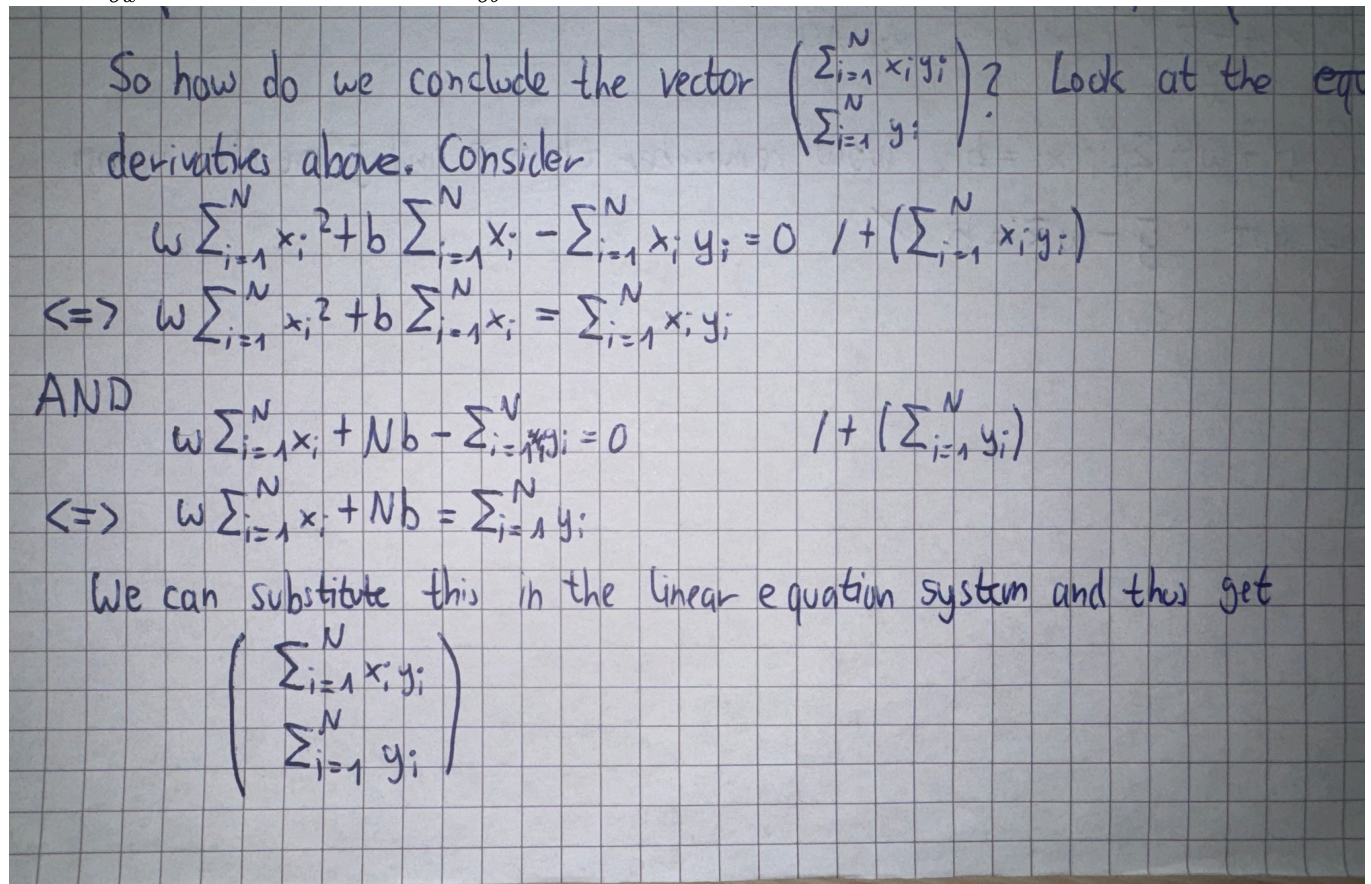 So how do we conclude the vector (∑_{i=1}^N x_i y_i
∑_{i=1}^N y_i)? Look at the equ
derivatives above. Consider
w ∑_{i=1}^N x_i² + b ∑_{i=1}^N x_i − ∑_{i=1}^N x_i y_i = 0 / + (∑_{i=1}^N x_i y_i)
<=> w ∑_{i=1}^N x_i² + b ∑_{i=1}^N x_i = ∑_{i=1}^N x_i y_i
AND
w ∑_{i=1}^N x_i + Nb − ∑_{i=1}^N y_i = 0 / + (∑_{i=1}^N y_i)
<=> w ∑_{i=1}^N x_i + Nb = ∑_{i=1}^N y_i
We can substitute this in the linear equation system and thus get
(∑_{i=1}^N x_i y_i
∑_{i=1}^N y_i)